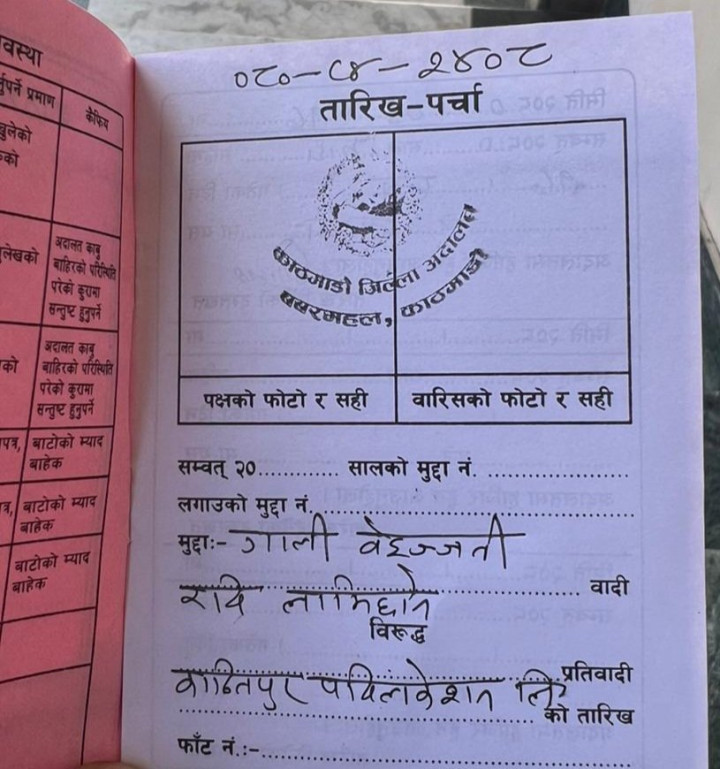 वस्था
र्नुपर्ने प्रमाण
कैफियत
को
लेखको
अदालत काबु
बाहिरको परिस्थिति
परेको कुरामा
सन्तुष्ट हुनुपर्ने
को
अदालत काबु
बाहिरको परिस्थिति
परेको कुरामा
सन्तुष्ट हुनुपर्ने
पत्र,
बाटोको म्याद
बाहेक
त्र,
बाटोको म्याद
बाहेक
बाटोको म्याद
बाहेक
०८०-८४-२४०८
तारिख-पर्चा
काठमाडौं जिल्ला अदालत
बबरमहल, काठमाडौं
पक्षको फोटो र सही
वारिसको फोटो र सही
सम्वत् २०............ सालको मुद्दा नं. ........................
लगाउको मुद्दा नं. ........................
मुद्दाः- गाली वेइज्जती
रवि लामिछाने ........................ वादी
विरूद्ध
कान्तिपुर पब्लिकेशन लि प्रतिवादी
........................ को तारिख
फाँट नं.:- ........................